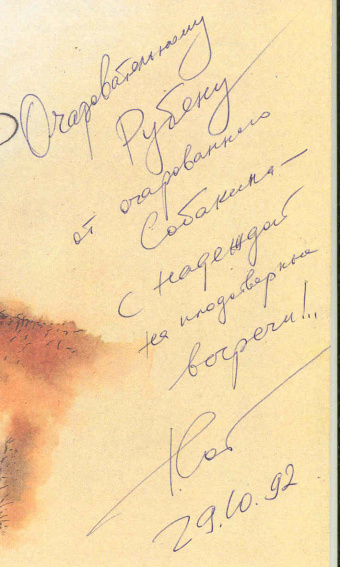 Очаровательному
Рубену
от очарованного
Собакина —
с надеждой
на плодотворные
встречи!..
29.10.92